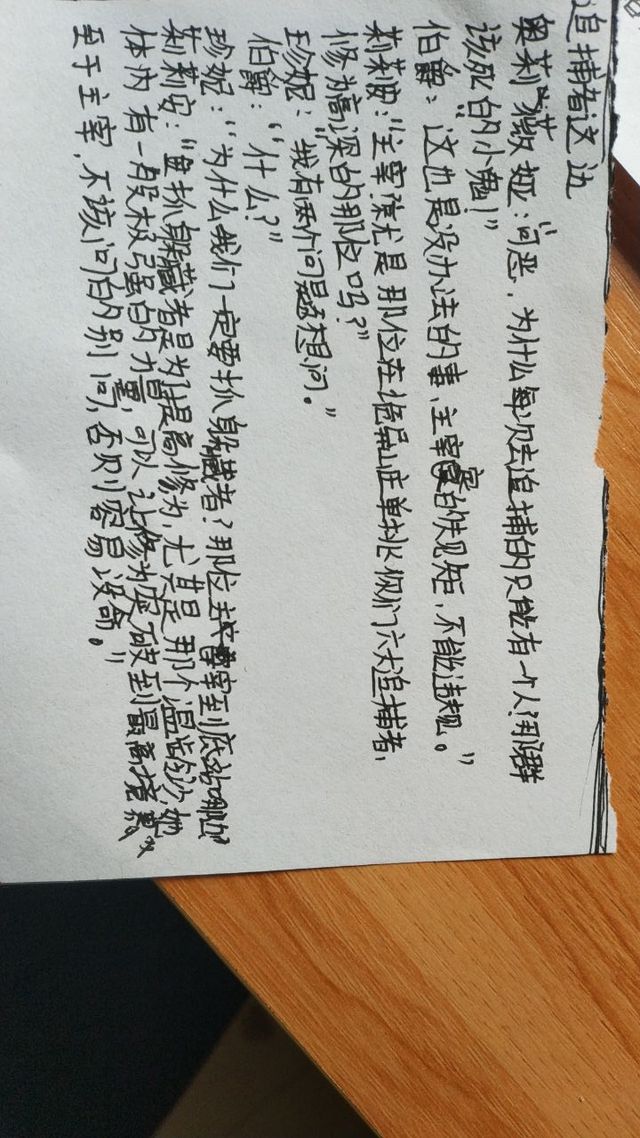 追捕者这边
奥莉薇娅:“可恶,为什么每次去追捕的只能有一个人?那群
该死的小鬼!”
伯爵:“这也是没办法的事,主宰定的铁规矩,不能违规。”
莉莉安:“主宰?就是那位在诡异山庄单挑你们六大追捕者,
修为高深的那位吗?”
珍妮:“我有两个问题想问。”
伯爵:“什么?”
珍妮:“为什么我们一定要抓躲藏者?那位主宰到底站哪边?”
莉莉安:“要抓躲藏者是为了提高修为,尤其是那个温龄沙,她
体内有一段极强的力量,可以让修为突破到最高境界,
至于主宰,不该问的别问,否则容易没命。”